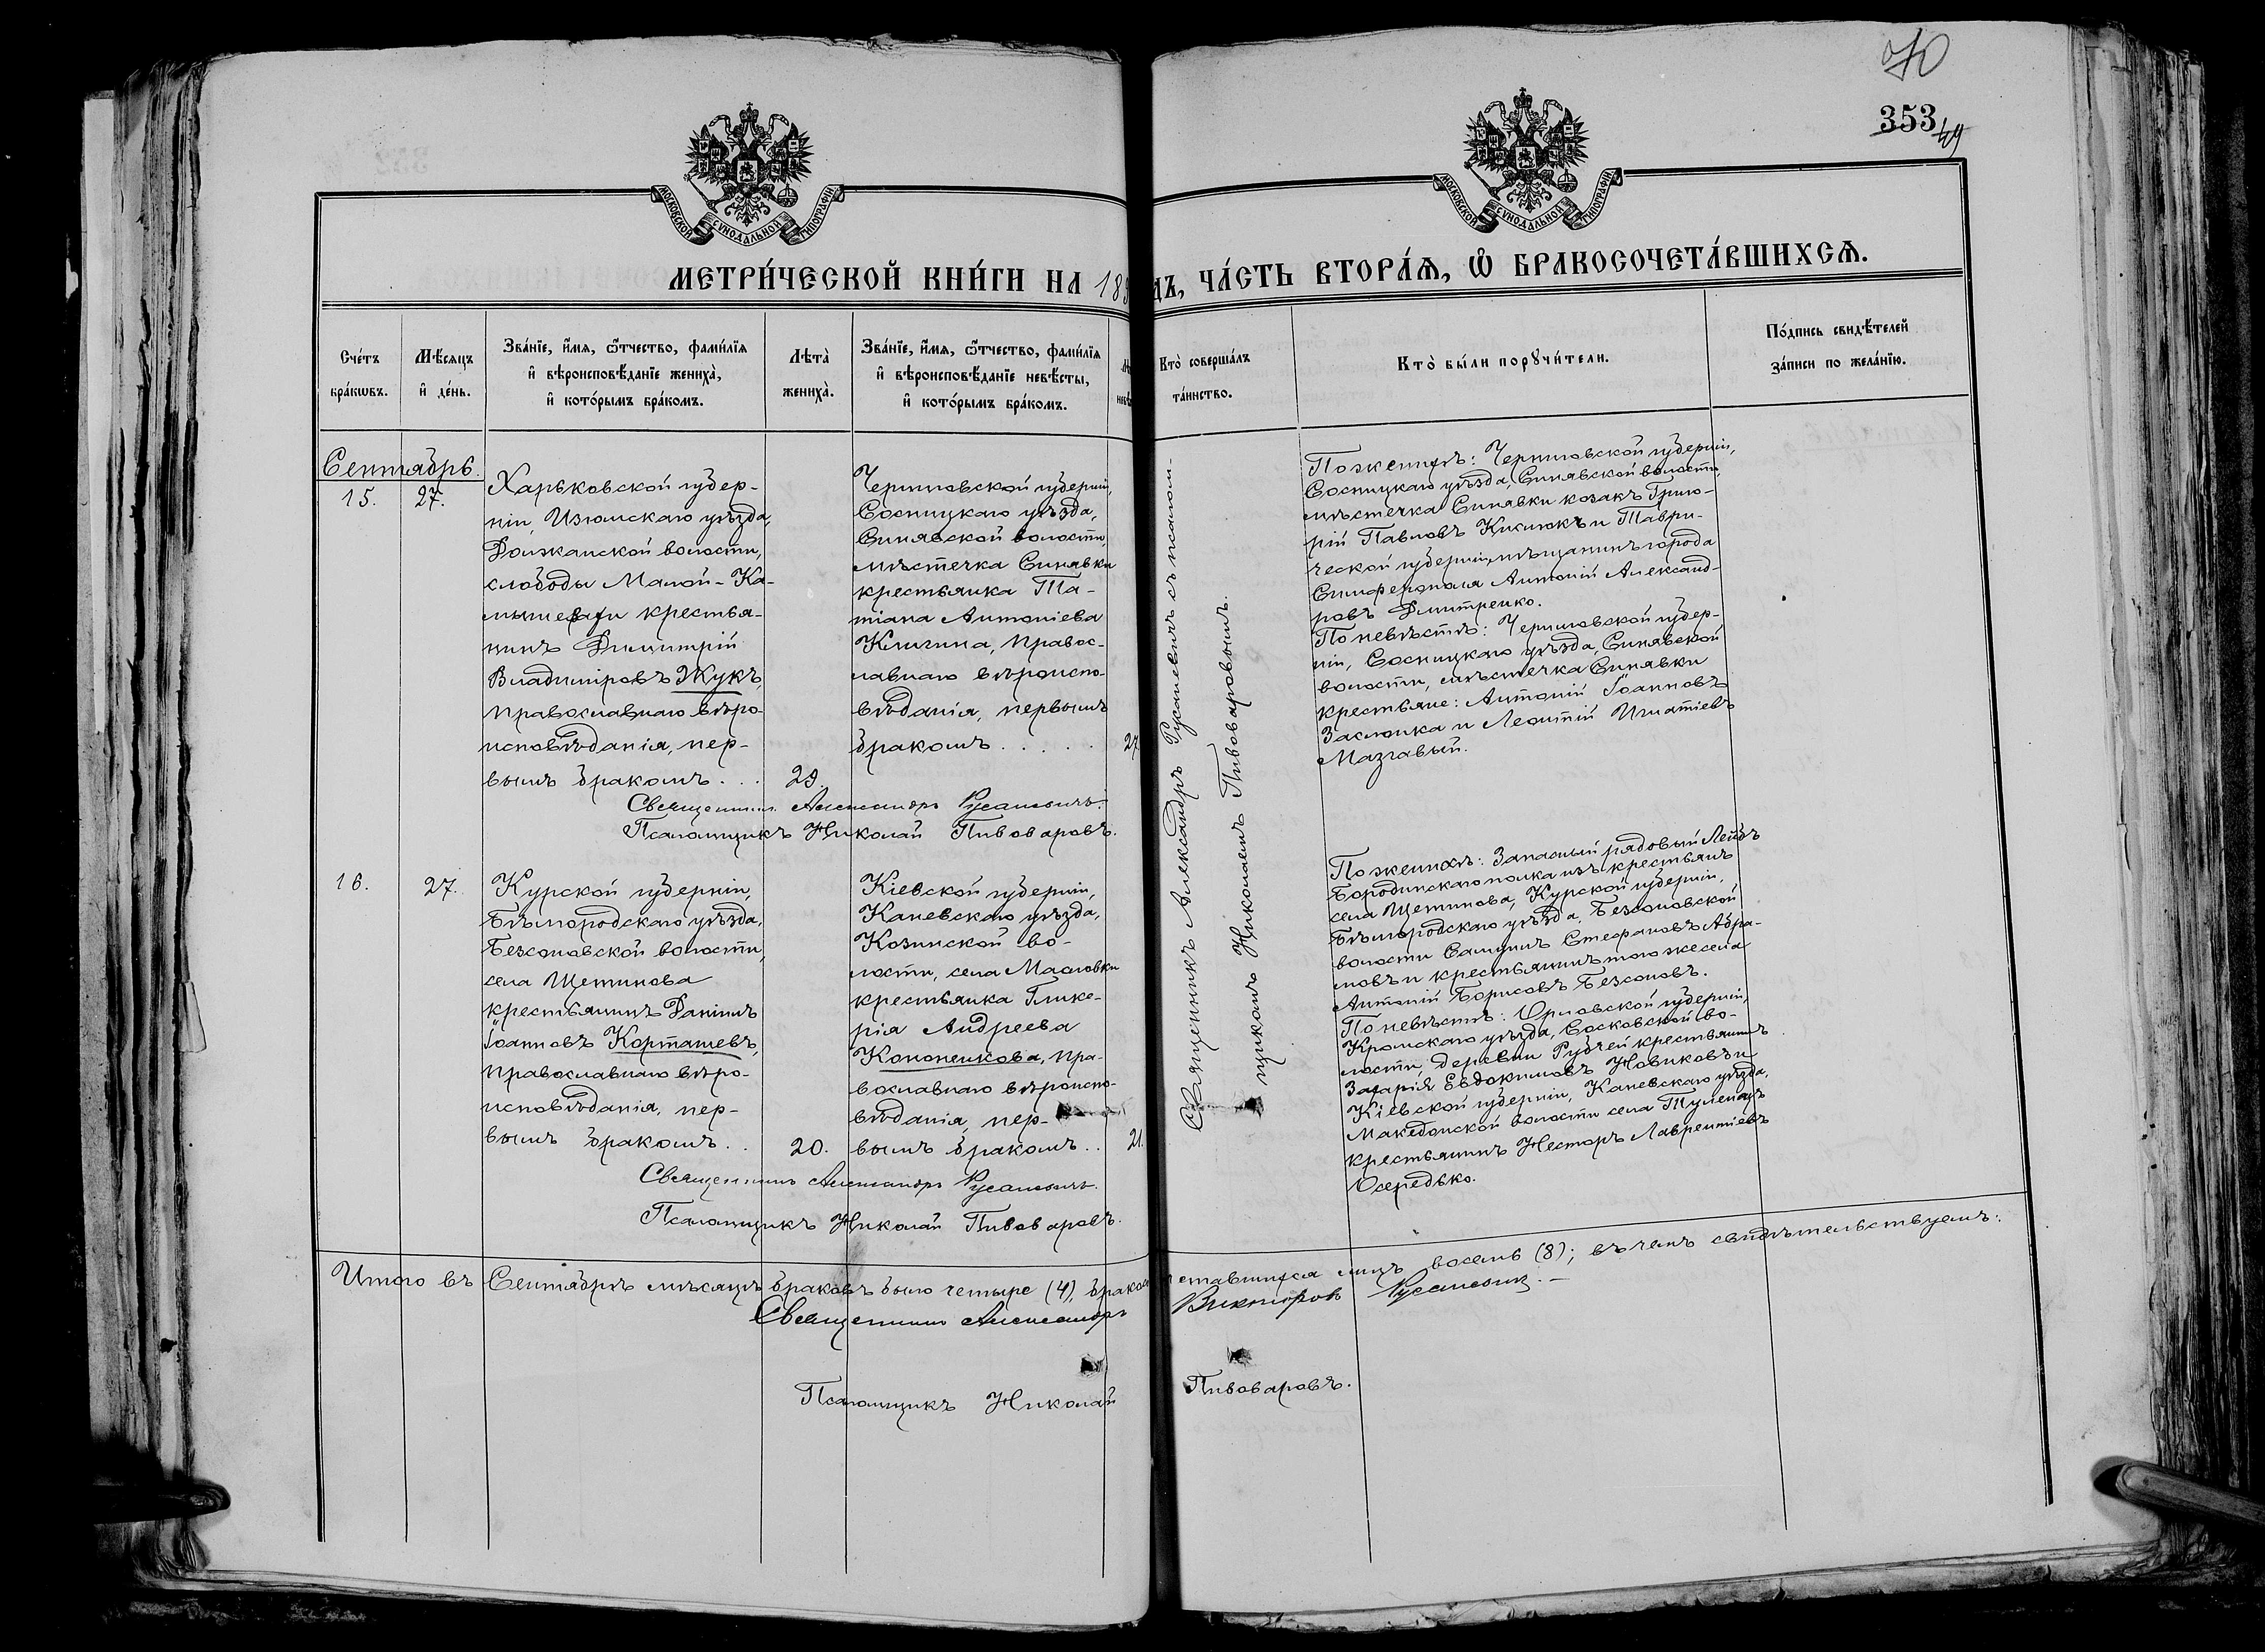 40
353
49
МОСКОВСКОЙ СѴНОДАЛЬНОЙ ТИПОГРАФІИ
МОСКОВСКОЙ СѴНОДАЛЬНОЙ ТИПОГРАФІИ
МЕТРИ́ЧЕСКОЙ КНИ́ГИ НА 18
ДЪ, ЧА́СТЬ ВТОРА́Ѧ, Ѽ БРАКОСОЧЕТА́ВШИХСѦ.
Сче́тъ
бра́кѡвъ.
Мѣ́сяцъ
и҆ де́нь.
Зва́нїе, и҆́мя, ѻ҆́тчество, фами́лїя
и҆ вѣроисповѣ́данїе жениха̀,
и҆ кото́рымъ бра́комъ.
Лѣта̀
жениха̀.
Зва́нїе, и҆́мя, ѻ҆́тчество, фами́лїя
и҆ вѣроисповѣ́данїе невѣ́сты,
и҆ кото́рымъ бра́комъ.
Кто̀ соверша́лъ
та́инство.
Кто̀ бы́ли порꙋчи́тели.
По́дпись свидѣ́телей
за́писи по жела́нїю.
Сентябрь.
15.
27.
Харьковской губер-
ніи, Изюмскаго уѣзда,
Должанской волости,
слободы Малой-Ка-
мышевахи крестья-
нинъ Димитрій
Владиміровъ Жукъ,
православнаго вѣро-
исповѣданія, пер-
вымъ бракомъ . . .
29.
Черниговской губерніи,
Сосницкаго уѣзда,
Синявской волости,
мѣстечка Синявки
крестьянка Та-
тіана Антоніева
Кличина, правос-
лавнаго вѣроиспо-
вѣданія, первымъ
бракомъ . . . . .
27
Священникъ Александръ Русаневичъ.
Псаломщикъ Николай Пивоваровъ.
Священникъ Александръ Русаневичъ съ псалом-
щикомъ Николаемъ Пивоваровымъ.
По женихѣ: Черниговской губерніи,
Сосницкаго уѣзда, Синявской волости,
мѣстечка Синявки козакъ Григо-
рій Павловъ Кислюкъ и Таври-
ческой губерніи, мѣщанинъ города
Симферополя Антоній Александ-
ровъ Дмитренко.
По невѣстѣ: Черниговской губер-
ніи, Сосницкаго уѣзда, Синявской
волости, мѣстечка Синявки
крестьяне: Антоній Іоанновъ
Заслонка и Леонтій Игнатіевъ
Мазгавый.
16.
27.
Курской губерніи,
Бѣлгородскаго уѣзда,
Безсоновской волости,
села Щетинова
крестьянинъ Даніилъ
Іоанновъ Корташевъ,
православнаго вѣро-
исповѣданія, пер-
вымъ бракомъ . .
20.
Кіевской губерніи,
Каневскаго уѣзда,
Козинской во-
лости, села Масловки
крестьянка Глике-
рія Андреева
Кононенкова, пра-
вославнаго вѣроиспо-
вѣданія, пер-
вымъ бракомъ . .
21.
Священникъ Александръ Русаневичъ.
Псаломщикъ Николай Пивоваровъ.
По женихѣ: Запасный рядовый Лейбъ
Бородинскаго полка изъ крестьянъ
села Щетинова, Курской губерніи,
Бѣлгородскаго уѣзда, Безсоновской
волости Самуилъ Стефановъ Абра-
мовъ и крестьянинъ того же села
Антоній Борисовъ Безсоновъ.
По невѣстѣ: Орловской губерніи,
Кромскаго уѣзда, Сосковской во-
лости, деревни Рубчей крестьянинъ
Захарія Евдокимовъ Новиковъ и
Кіевской губерніи, Каневскаго уѣзда,
Македонской волости села Тулинецъ
крестьянинъ Несторъ Лаврентіевъ
Осередько.
Итого въ Сентябрѣ мѣсяцѣ браковъ было четыре (4), бракосо
четавшихся лицъ восемь (8); въ чемъ свидѣтельствуемъ:
Священникъ Александръ
Викторовъ Русаневичъ. —
Псаломщикъ Николай
Пивоваровъ.